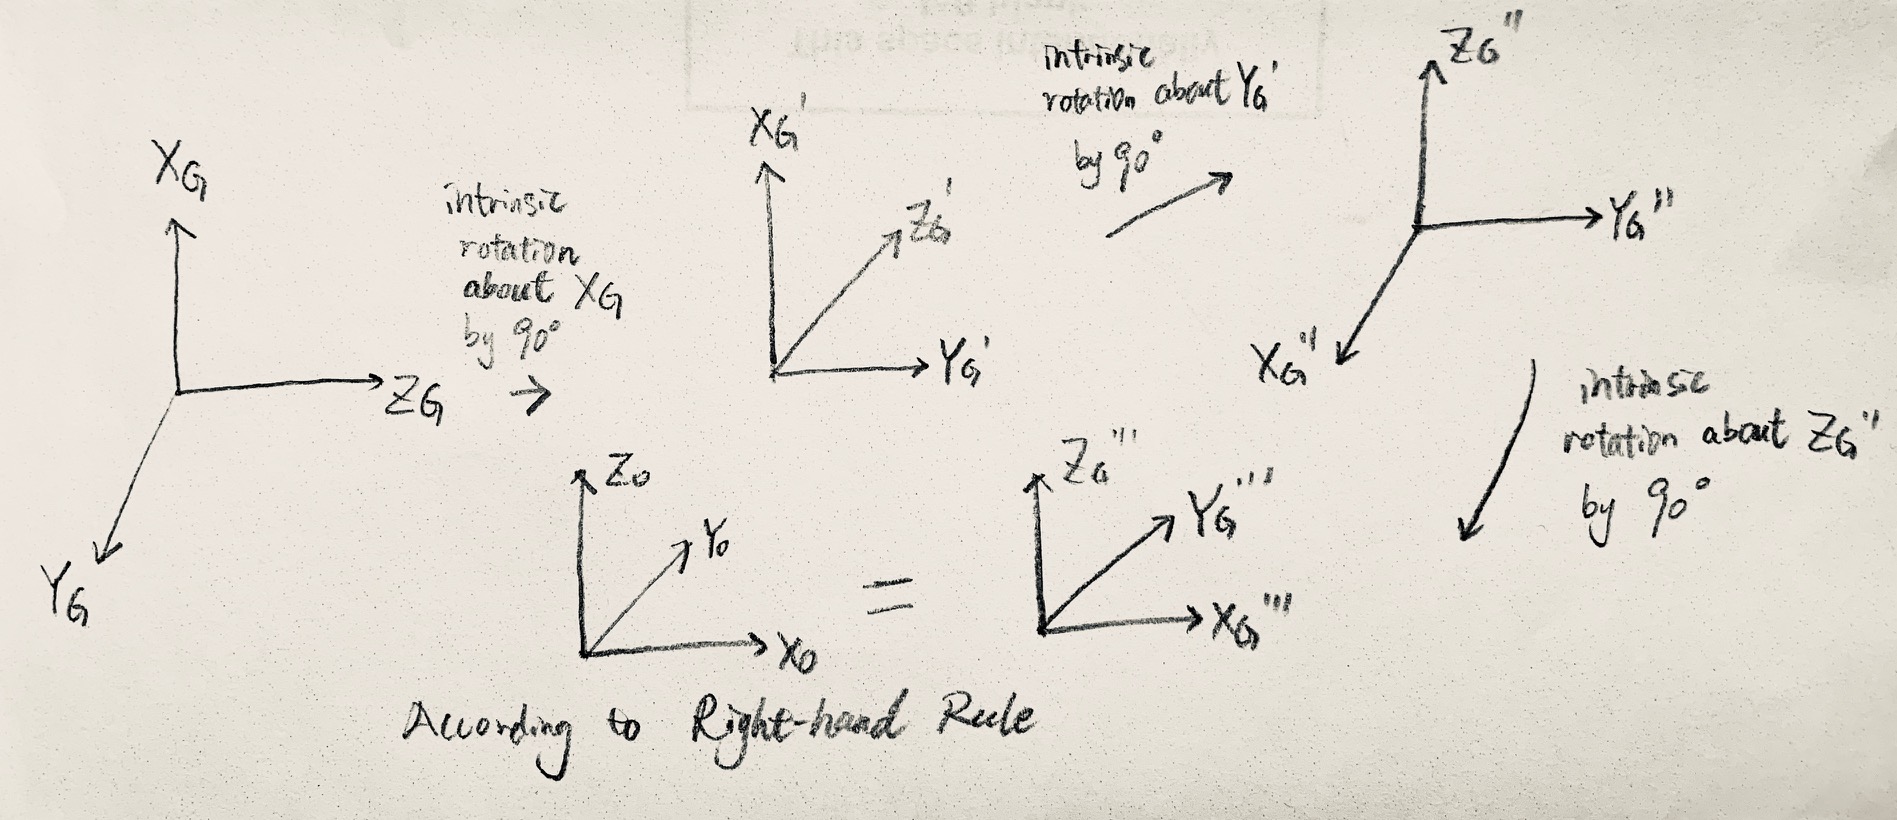 X_G
Z_G
Y_G
intrinsic
rotation
about X_G
by 90°
X_G'
Z_G'
Y_G'
intrinsic
rotation about Y_G'
by 90°
Z_G''
Y_G''
X_G''
intrinsic
rotation about Z_G''
by 90°
Z_G'''
Y_G'''
X_G'''
=
Z_0
Y_0
X_0
According to Right-hand Rule